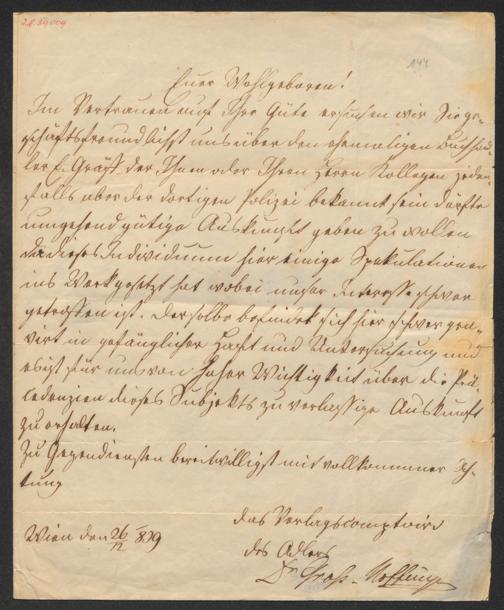 28.19009
144
Euer Wohlgeboren!
Im Vertrauen auf Ihre Güte ersuchen wir Sie ge-
schäftsfreundlichst uns über den ehemaligen Buchhänd-
ler E. Gräff der Ihnen oder Ihren Herrn Kollegen jeden-
falls aber der dortigen Polizei bekannt sein dürfte
umgehend gütige Auskunft geben zu wollen
da dieses Individuum hier einige Spekulationen
ins Werk gesetzt hat wobei unser Interesse schwer
getroffen ist. Derselbe befindet sich hier schwer gra-
virt in gefänglicher Haft und Untersuchung und
es ist für uns von hoher Wichtigkeit über die Prä-
cedenzien dieses Subjekts zuverlässige Auskunft
zu erhalten.
Zu Gegendiensten bereitwilligst mit vollkommner Ach-
tung
Wien den 26/12 839
das Verlagscomptoir
des Adlers
Dr Groß-Hoffinger